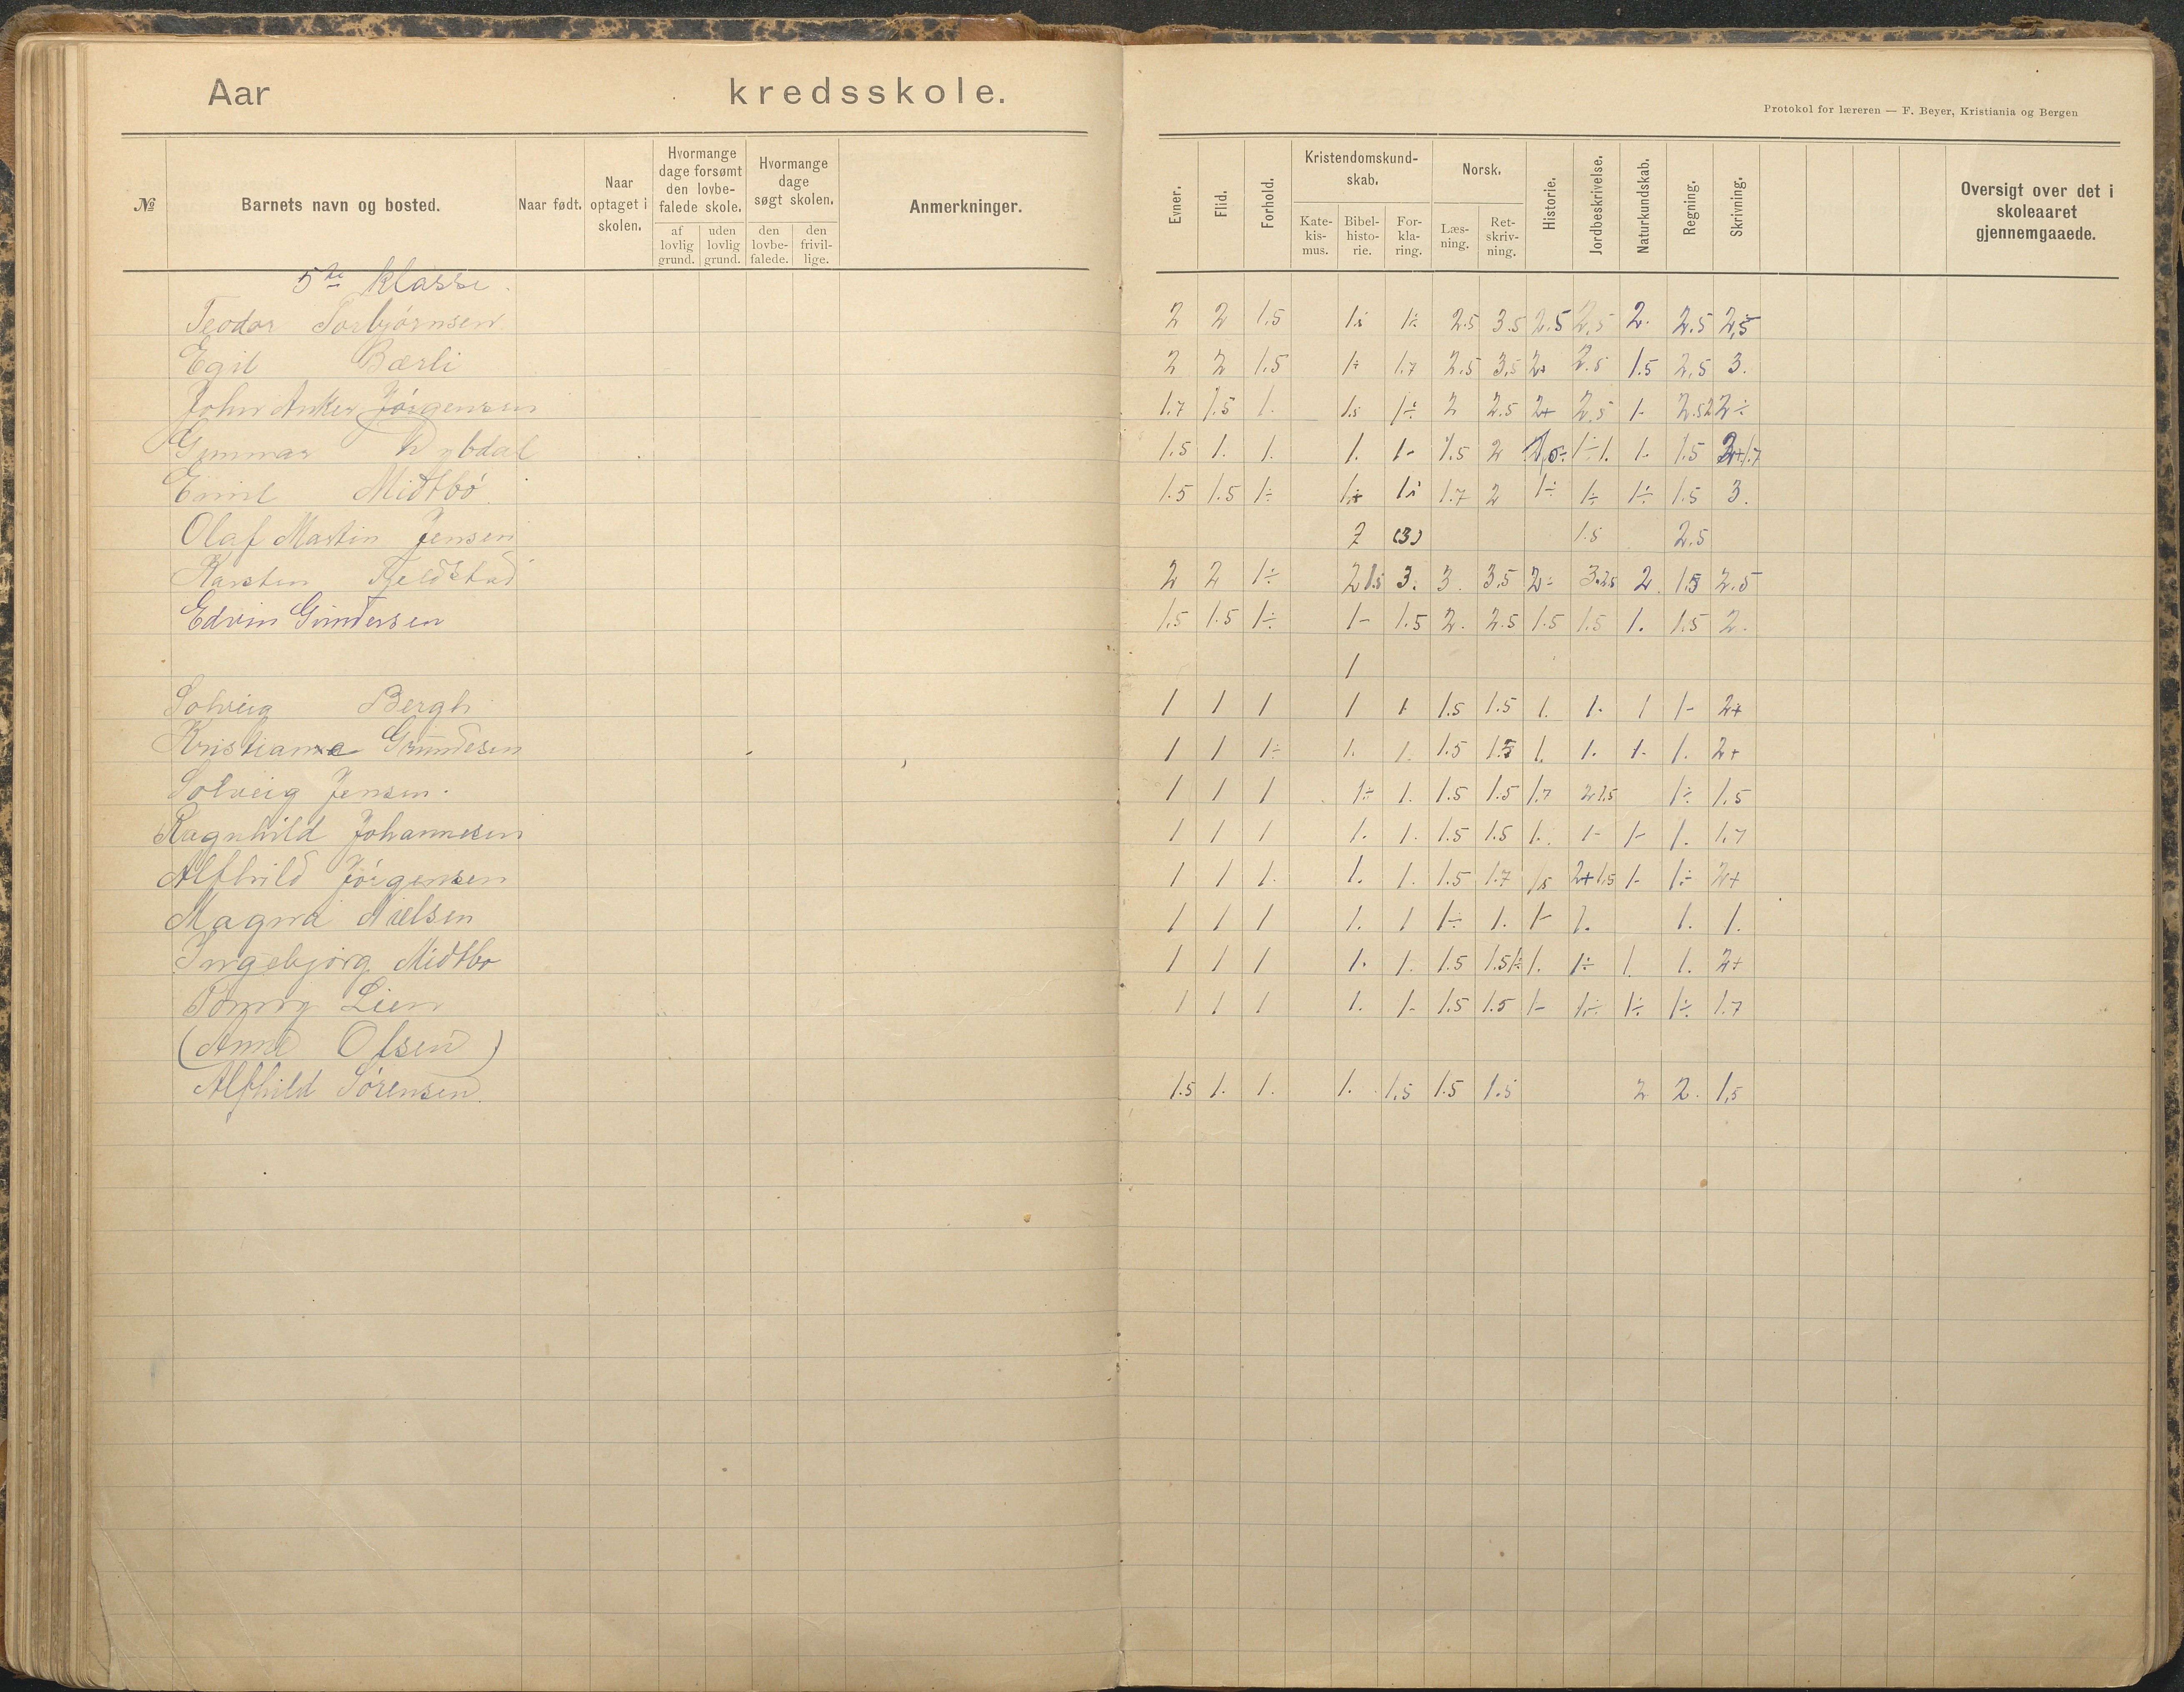 Aar kredsskole.
Protokol for læreren — F. Beyer, Kristiania og Bergen
№ Barnets navn og bosted. Naar født. Naar optaget i skolen. Hvormange dage forsømt den lovbefalede skole. af lovlig grund. uden lovlig grund. Hvormange dage søgt skolen. den lovbefalede. den frivillige. Anmerkninger. Evner. Flid. Forhold. Kristendomskundskab. Katekismus. Bibelhistorie. Forklaring. Norsk. Læsning. Retskrivning. Historie. Jordbeskrivelse. Naturkundskab. Regning. Skrivning. Oversigt over det i skoleaaret gjennemgaaede.
5te klasse.
Teodor Torbjørnsen 2 2 1.5 1÷ 2.5 3.5 2.5 2,5 2. 2.5 2,5
Egil Bærli 2 2 1.5 1÷ 1.7 2.5 3,5 2+ 2.5 1.5 2,5 3.
John Anker Jørgensen 1.7 1.5 1. 1.5 1÷ 2 2.5 2+ 2,5 1- 2.5 2 2÷
Gunnar 1.5 1. 1. 1. 1- 1.5 2 1÷ 1. 1. 1.5 1.7
Emil Midtbø 1.5 1.5 1÷ 1+ 1.7 2 1÷ 1÷ 1÷ 1.5 3.
Olaf Martin Jensen 2 (3) 1.5 2.5
Karsten Fjeldstad 2 2 1÷ 2 1.5 3. 3. 3.5 2÷ 3. 2.5 2. 1.5 2.5
Edvin Gundersen 1.5 1.5 1÷ 1- 1.5 2. 2.5 1.5 1.5 1. 1.5 2.
1
Solveig Bergh 1 1 1 1 1 1.5 1.5 1. 1. 1 1- 2+
Kristiane Grundesen 1 1 1÷ 1. 1. 1.5 1.5 1. 1. 1. 1. 2+
Solveig Jensen. 1 1 1 1÷ 1. 1.5 1.5 1.7 2 1.5 1÷ 1.5
Ragnhild Johannesen 1 1 1 1. 1. 1.5 1.5 1. 1- 1- 1. 1.7
Alfhild Jørgensen 1 1 1. 1. 1. 1.5 1.7 1.5 2+ 1.5 1- 1÷ 2+
Magna Nielsen 1 1 1 1. 1 1÷ 1. 1- 1. 1. 1.
Ingebjørg Midtbø 1 1 1 1. 1. 1.5 1.5 1÷ 1. 1÷ 1. 1. 2+
Lien 1 1 1 1. 1- 1.5 1.5 1- 1÷ 1÷ 1÷ 1.7
(Anne Olsen)
Alfhild Sørensen. 1.5 1. 1. 1. 1.5 1.5 1.5 2 2. 1,5